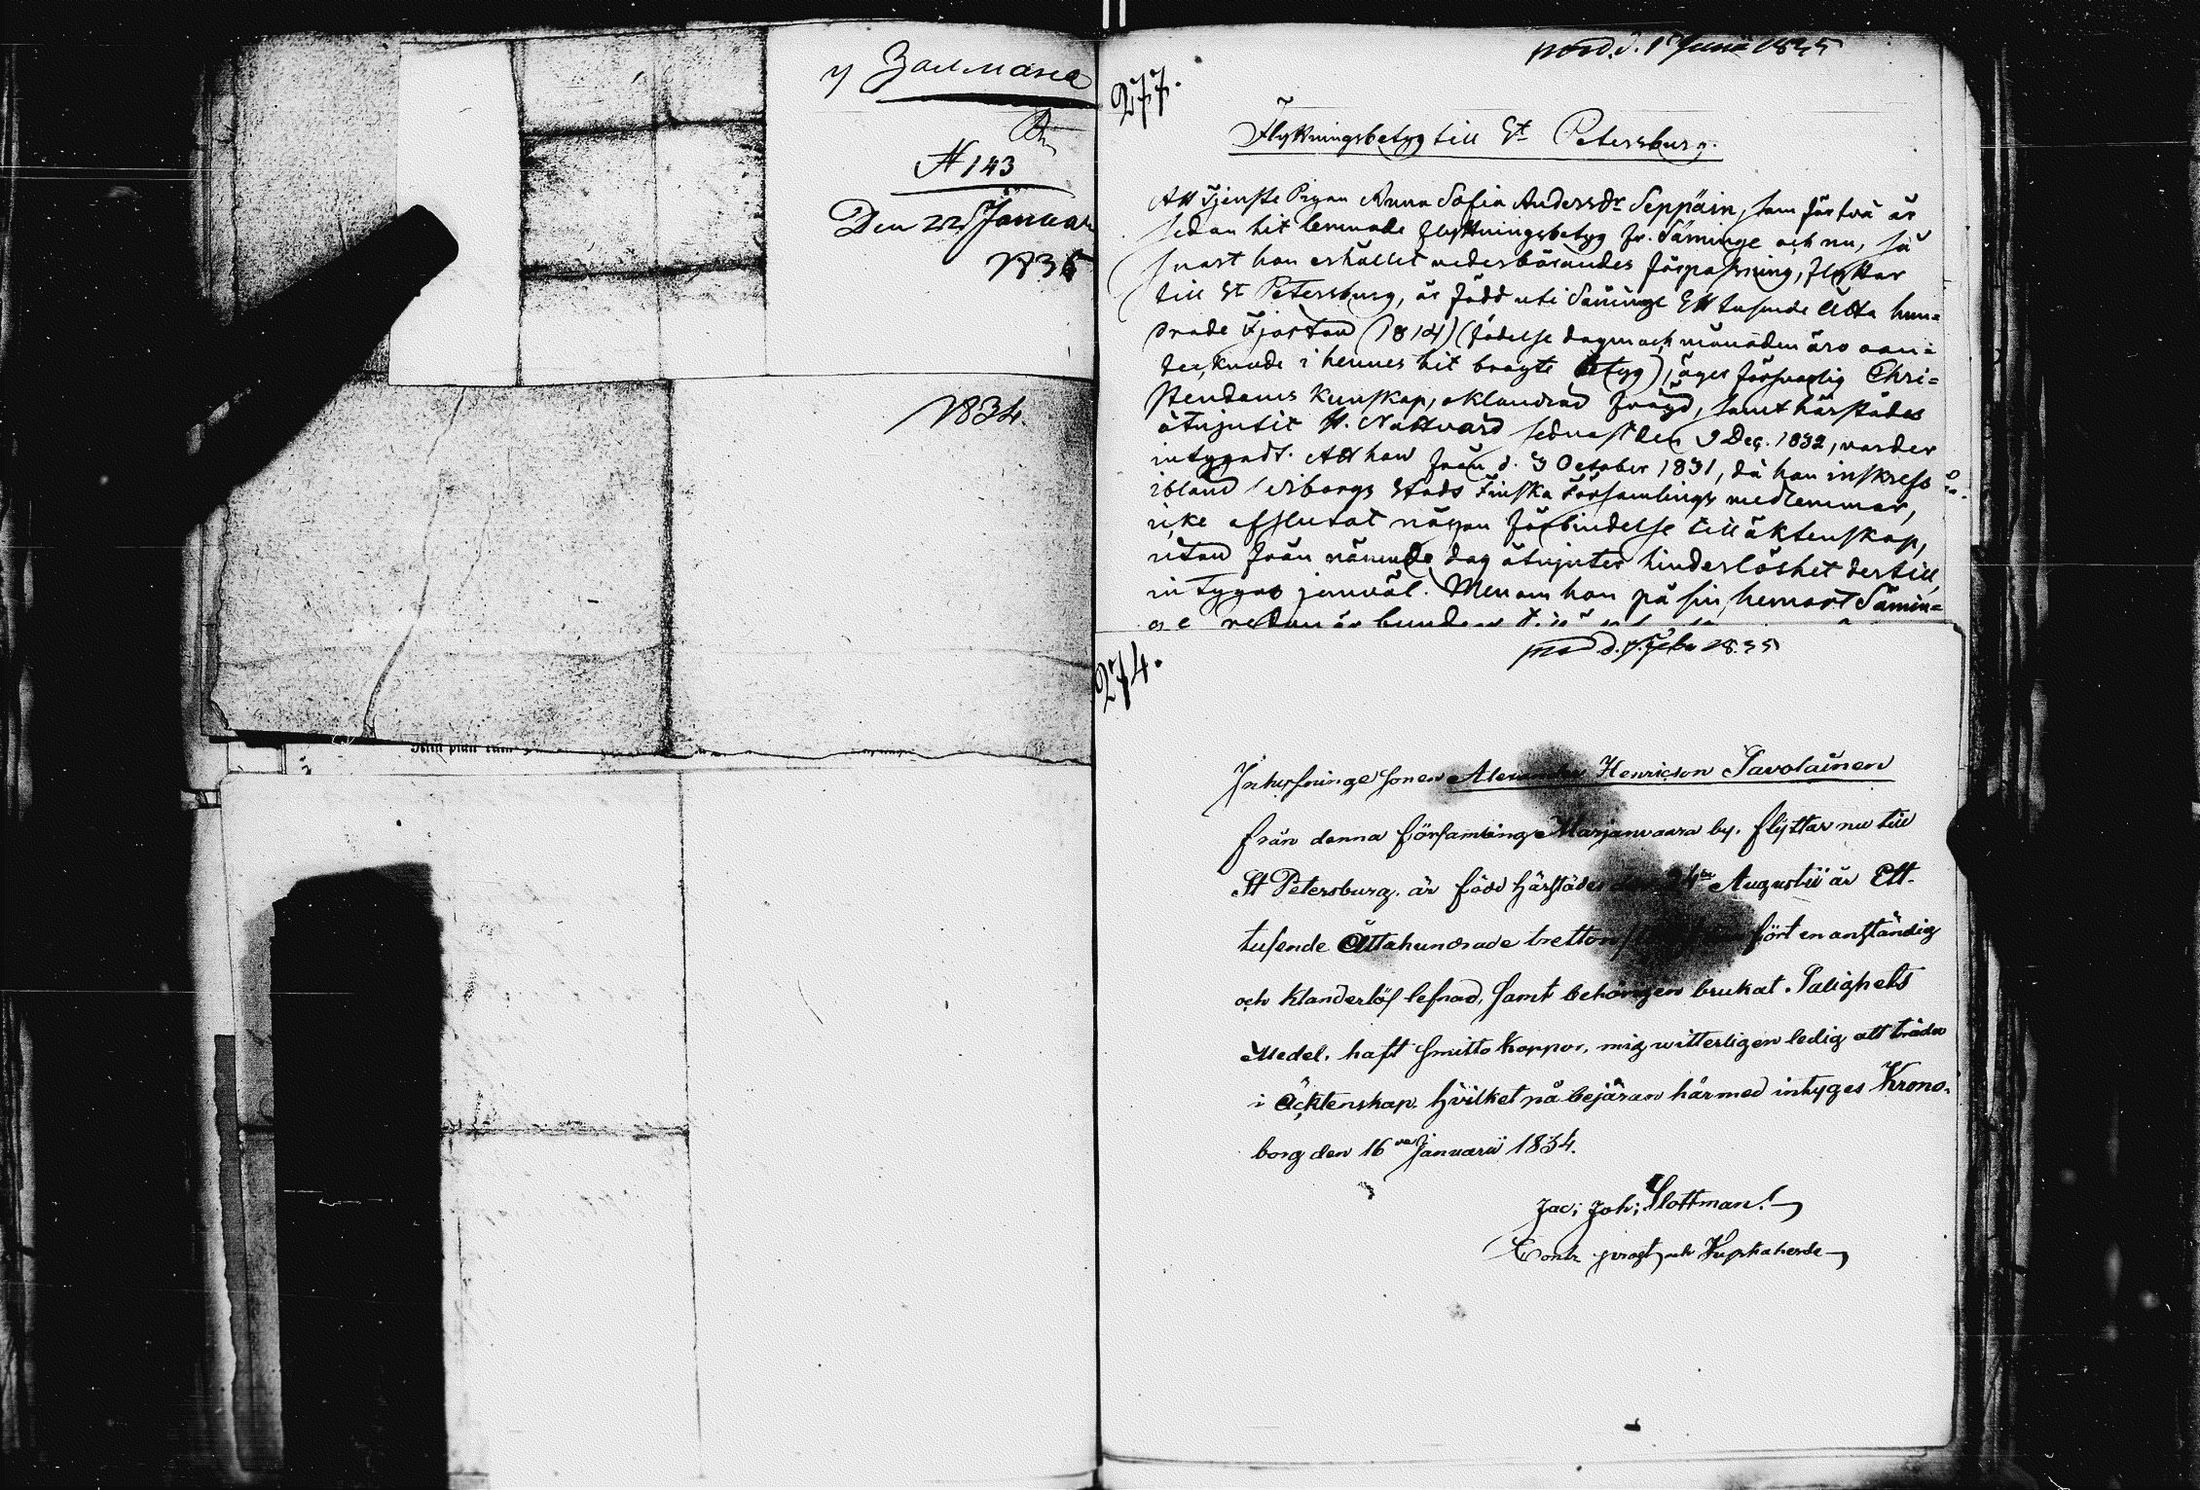 у Залмана
N 143
Den 22 Januar
1835
1834.
277.
prod. d. 1 Junii 1835
Flyttningsbetyg till St. Petersburg.
Att Tjenste Pigan Anna Sofia Andersdr Seppäin, som för två år
sedan hit lemnade flyttningsbetyg fr. Säminge och nu, så
snart hon erhållit vederbörandes förpassning, flyttar
till St Petersburg, är född uti Säminge Ett tusende Åtta hun=
drade Fjorton (1814) (födelse dagen och månaden äro oan=
tecknade i hennes hit bragte betyg), äger försvarlig Chri=
stendoms kunskap, oklandrad frägd, samt härstädes
åtnjutit H. Nattvard sednast den 9 Dec. 1832, varder
intygadt. Att hon från d. 3 October 1831, då hon inskrefs
ibland Wiborgs Stads Finska Församlings medlemmar,
icke afslutat någon förbindelse till äktenskap,
utan från nämnde dag åtnjuter hinderlöshet dertill,
intygas jemväl. Men om hon på sin hemort Sämin=
ge redan är bunden till
274.
prod d. 7 Febr 1835
Inhysinge sonen Alexander Henricson Pavolainen
från denna församling Marjanvaara by, flyttar nu till
St Petersburg, är född härstädes den 24de Augusti år Ett
tusende Åttahundrade tretton fört en anständig
och klanderlös lefnad, samt behörigen brukat Salighets
Medel, haft smitto koppor, mig witterligen ledig att träda
i Äcktenskap. Hvilket på begäran härmed intyges Krono-
borg den 16de Januarii 1834.
Jac; Joh; Slottman.
Contr prost och Kyrkoherde